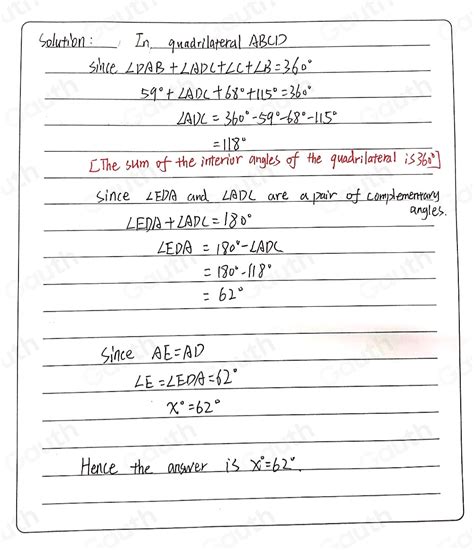 Solution: In quadrilateral ABCD
since ∠DAB + ∠ADC + ∠C + ∠B = 360°
59° + ∠ADC + 68° + 115° = 360°
∠ADC = 360° - 59° - 68° - 115°
= 118°
[The sum of the interior angles of the quadrilateral is 360°]
since ∠EDA and ∠ADC are a pair of complementary
angles.
∠EDA + ∠ADC = 180°
∠EDA = 180° - ∠ADC
= 180° - 118°
= 62°
Since AE = AD
∠E = ∠EDA = 62°
x° = 62°
Hence the answer is x° = 62°.